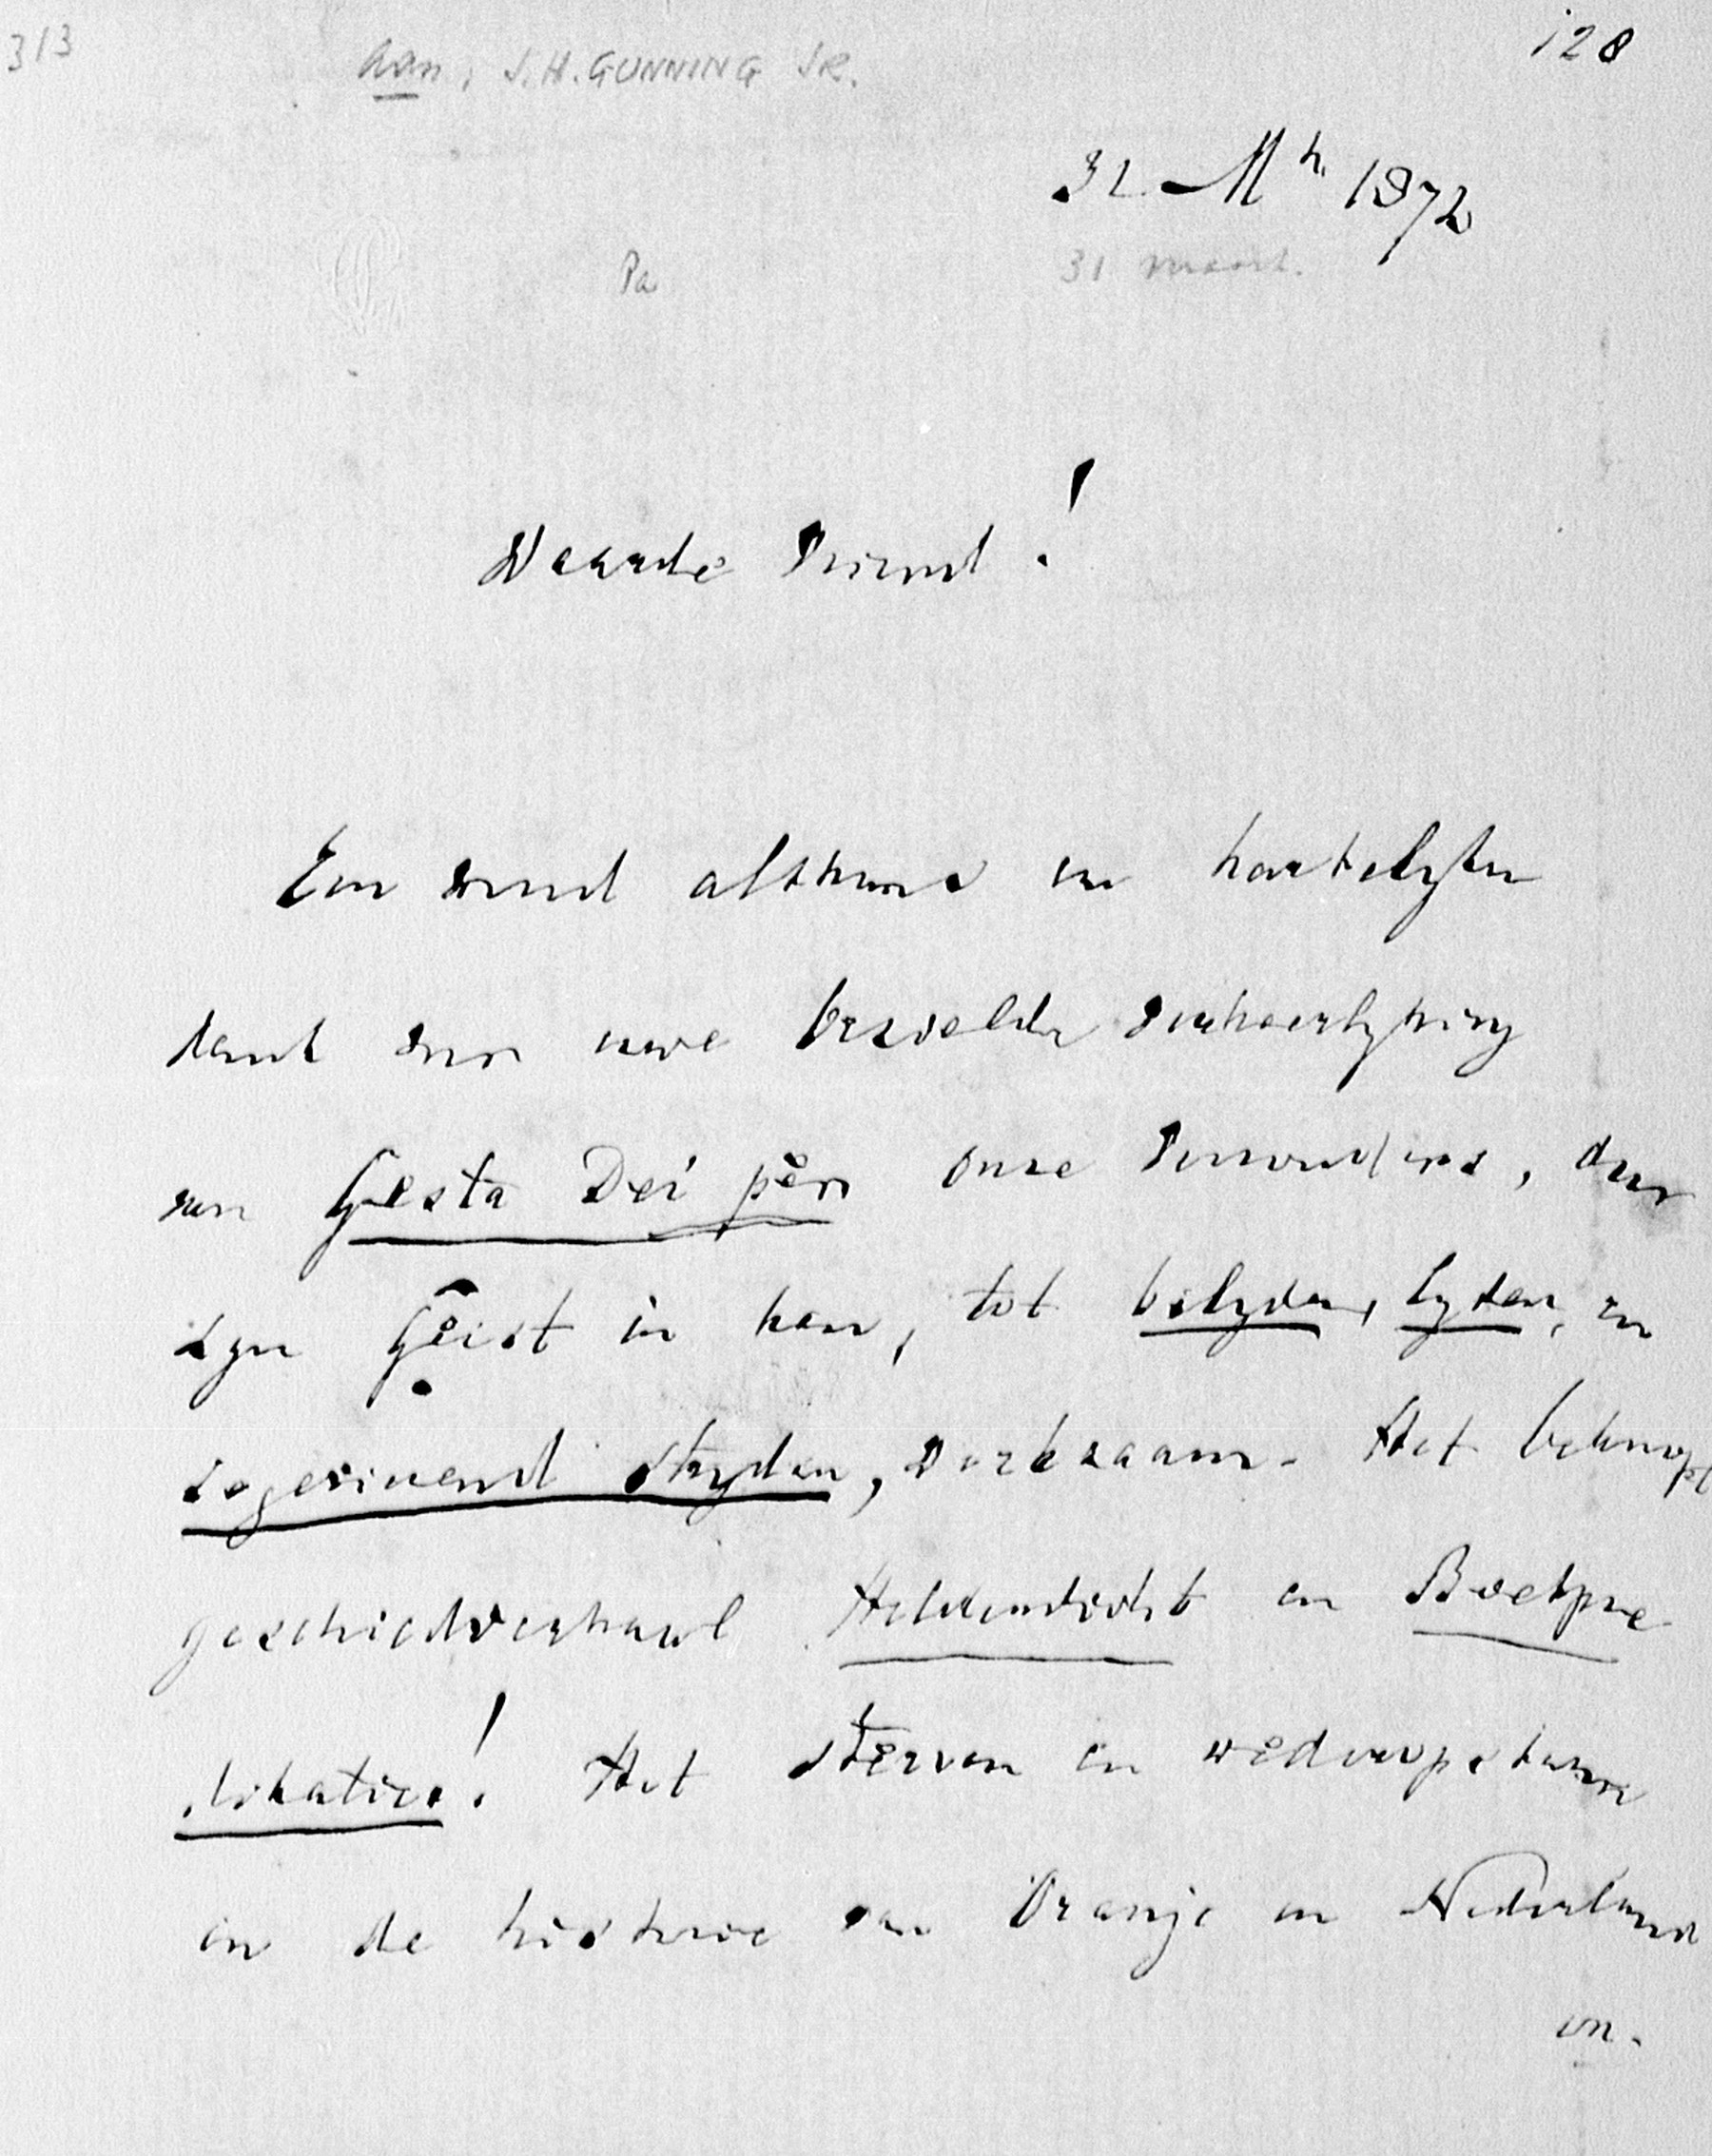 313
128
Aan, J.H. GUNNING JR.
31 Mrt. 1872
Pa
31 maart.
Waarde Vriend!
Een woord althans en hartelyken
dank voor uwe bezielde verheerlyking
van Gesta Dei per onze Vaderen, door
zyn Geest in hen, tot belyden, lyden, en
zegevierend stryden, werkzaam. Het beknopt
geschiedverhaal Heldendicht en Boetpre
dikatien! Het sterven en wederopstaan
in de historie van Oranje en Nederland
on.